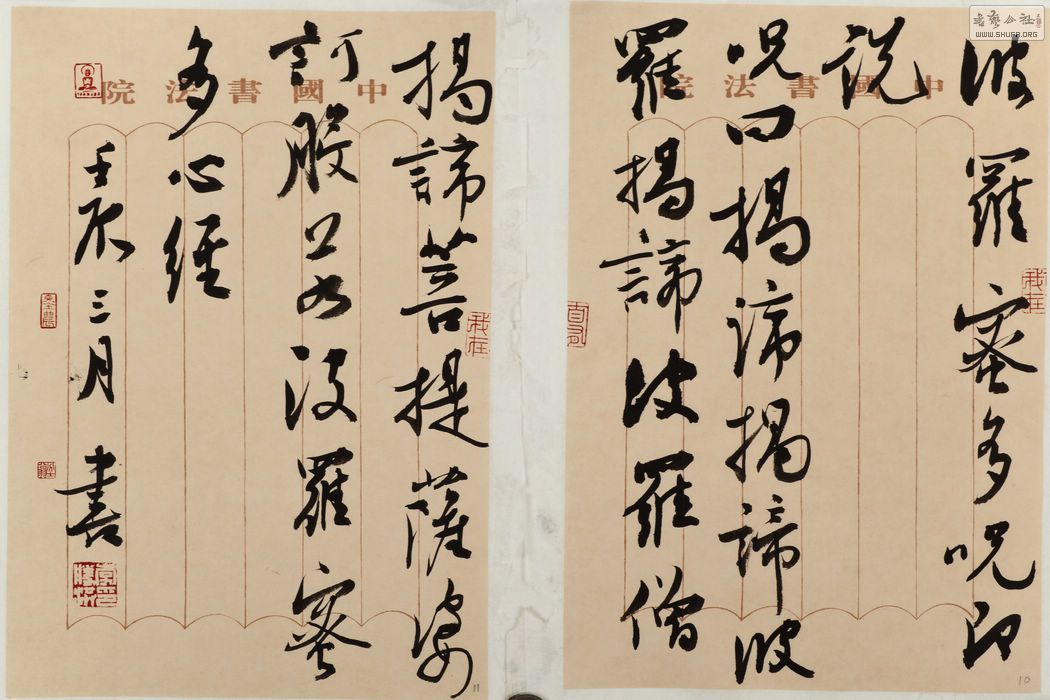 書藝公社
WWW.SHUFA.ORG
中國書法院
波羅蜜多呪即
説
呪曰揭諦揭諦波
羅揭諦波羅僧
我在
10
中國書法院
揭諦菩提薩婆
訶般若波羅蜜
多心經
壬辰三月書
我在
11